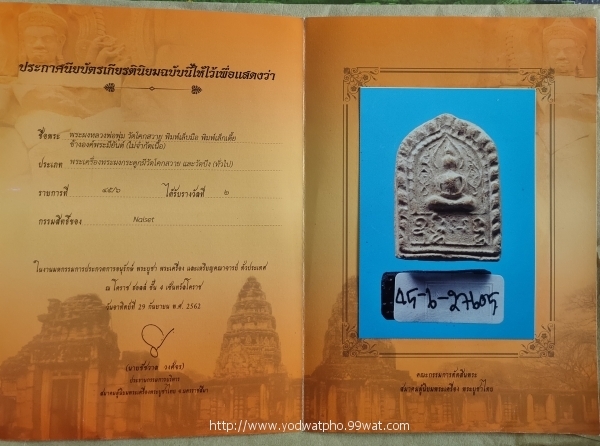 ประกาศนียบัตรเกียรตินิยมฉบับนี้ให้ไว้เพื่อแสดงว่า
ชื่อพระ พระผงหลวงพ่อพุ่ม วัดโคกสวาย พิมพ์เล็บมือ พิมพ์เล็กเตี้ย
ข้างองค์พระมียันต์ (ไม่จำกัดเนื้อ)
ประเภท พระเครื่องพระผงกระดูกผีวัดโคกสวาย และวัดบึง (ทั่วไป)
รายการที่ ๔๕/๖ ได้รับรางวัลที่ ๒
กรรมสิทธิ์ของ Naiset
ในงานมหกรรมการประกวดการอนุรักษ์ พระบูชา พระเครื่อง และเหรียญคณาจารย์ ทั่วประเทศ
ณ โคราช ฮอลล์ ชั้น 4 เซ็นทรัลโคราช
วันอาทิตย์ที่ 29 กันยายน พ.ศ. 2562
ประธานกรรมการบริหาร
สมาคมผู้นิยมพระเครื่องพระบูชาไทย จ.นครราชสีมา
คณะกรรมการตัดสินพระ
สมาคมผู้นิยมพระเครื่อง พระบูชาไทย
http://www.yodwatpho.99wat.com